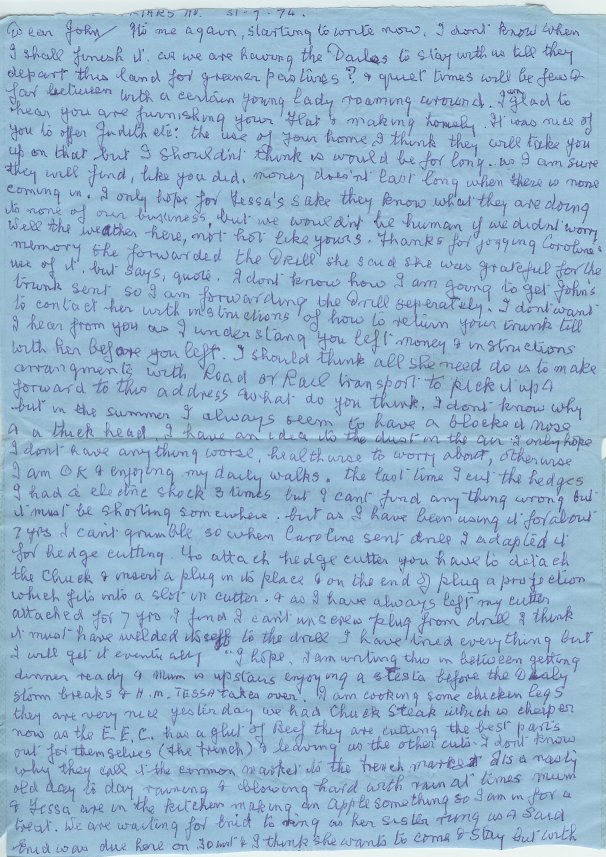 31-7-74.
Dear John/ Its me again, starting to write now, I dont know when
I shall finish it. as we are having the Dailes to stay with us till they
depart this land for greener pastures? & quiet times will be few &
far between with a certain young lady roaming around. I am glad to
hear you are furnishing your flat & making homely. It was nice of
you to offer Judith etc: the use of your home, I think they will take you
up on that, but I shouldnt think is would be for long. as I am sure
they will find, like you did, money doesnt last long when there is none
coming in. I only hope for Tessa's sake they know what they are doing
its none of our business, but we wouldnt be human if we didnt worry
Well the weather here, not hot like yours. Thanks for jogging Caroline's
memory she forwarded the Drill she said she was grateful for the
use of it, but says, quote. I dont know how I am going to get John's
trunk sent so I am forwarding the Drill seperately. I dont want
to contact her with instructions of how to return your trunk till
I hear from you as I understang you left money & instructions
with her before you left. I should think all she need do is to make
arrangments with Road or Rail transport to pick it up &
forward to this address what do you think. I dont know why
but in the summer I always seem to have a blocked nose
& a thick head I have an idea its the dust in the air I only hope
I dont have anything worse, healthwise to worry about, otherwise
I am OK & enjoying my daily walks. the last time I cut the hedges
I had a electric shock 3 times but I cant find any thing wrong but
it must be shorting somewhere. but as I have been using it for about
7 yrs I cant grumble so when Caroline sent drill I adapted it
for hedge cutting. to attach hedge cutter you have to detach
the Chuck & insert a plug in its place & on the end of plug a projection
which fits into a slot in cutter. & as I have always left my cutter
attached for 7 yrs I find I cant unscrew plug from drill I think
it must have welded itself to the drill I have tried everything but
I will get it eventually "I hope. I am writing this in between getting
dinner ready & Mum is upstairs enjoying a siesta before the Daly
storm breaks & H.M. TESSA takes over. I am cooking some chicken legs
they are very nice yesterday we had Chuck Steak which is cheaper
now as the E.E.C. has a glut of Beef they are cutting the best parts
out for themselves (the french) & leaving us the other cuts. I dont know
why they call it the common market its the french market Its a nasty
old day to day raining & blowing hard with rain at times mum
& Tessa are in the kitchen making an apple something so I am in for a
treat. We are waiting for Enid to ring as her sister rung us & said
Enid was due here on 30 inst & I think she wants to come & stay but with